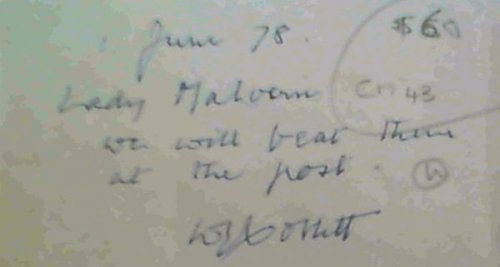 1 June 78. $60
Lady Malvern CM 43
we will beat them
at the post. W